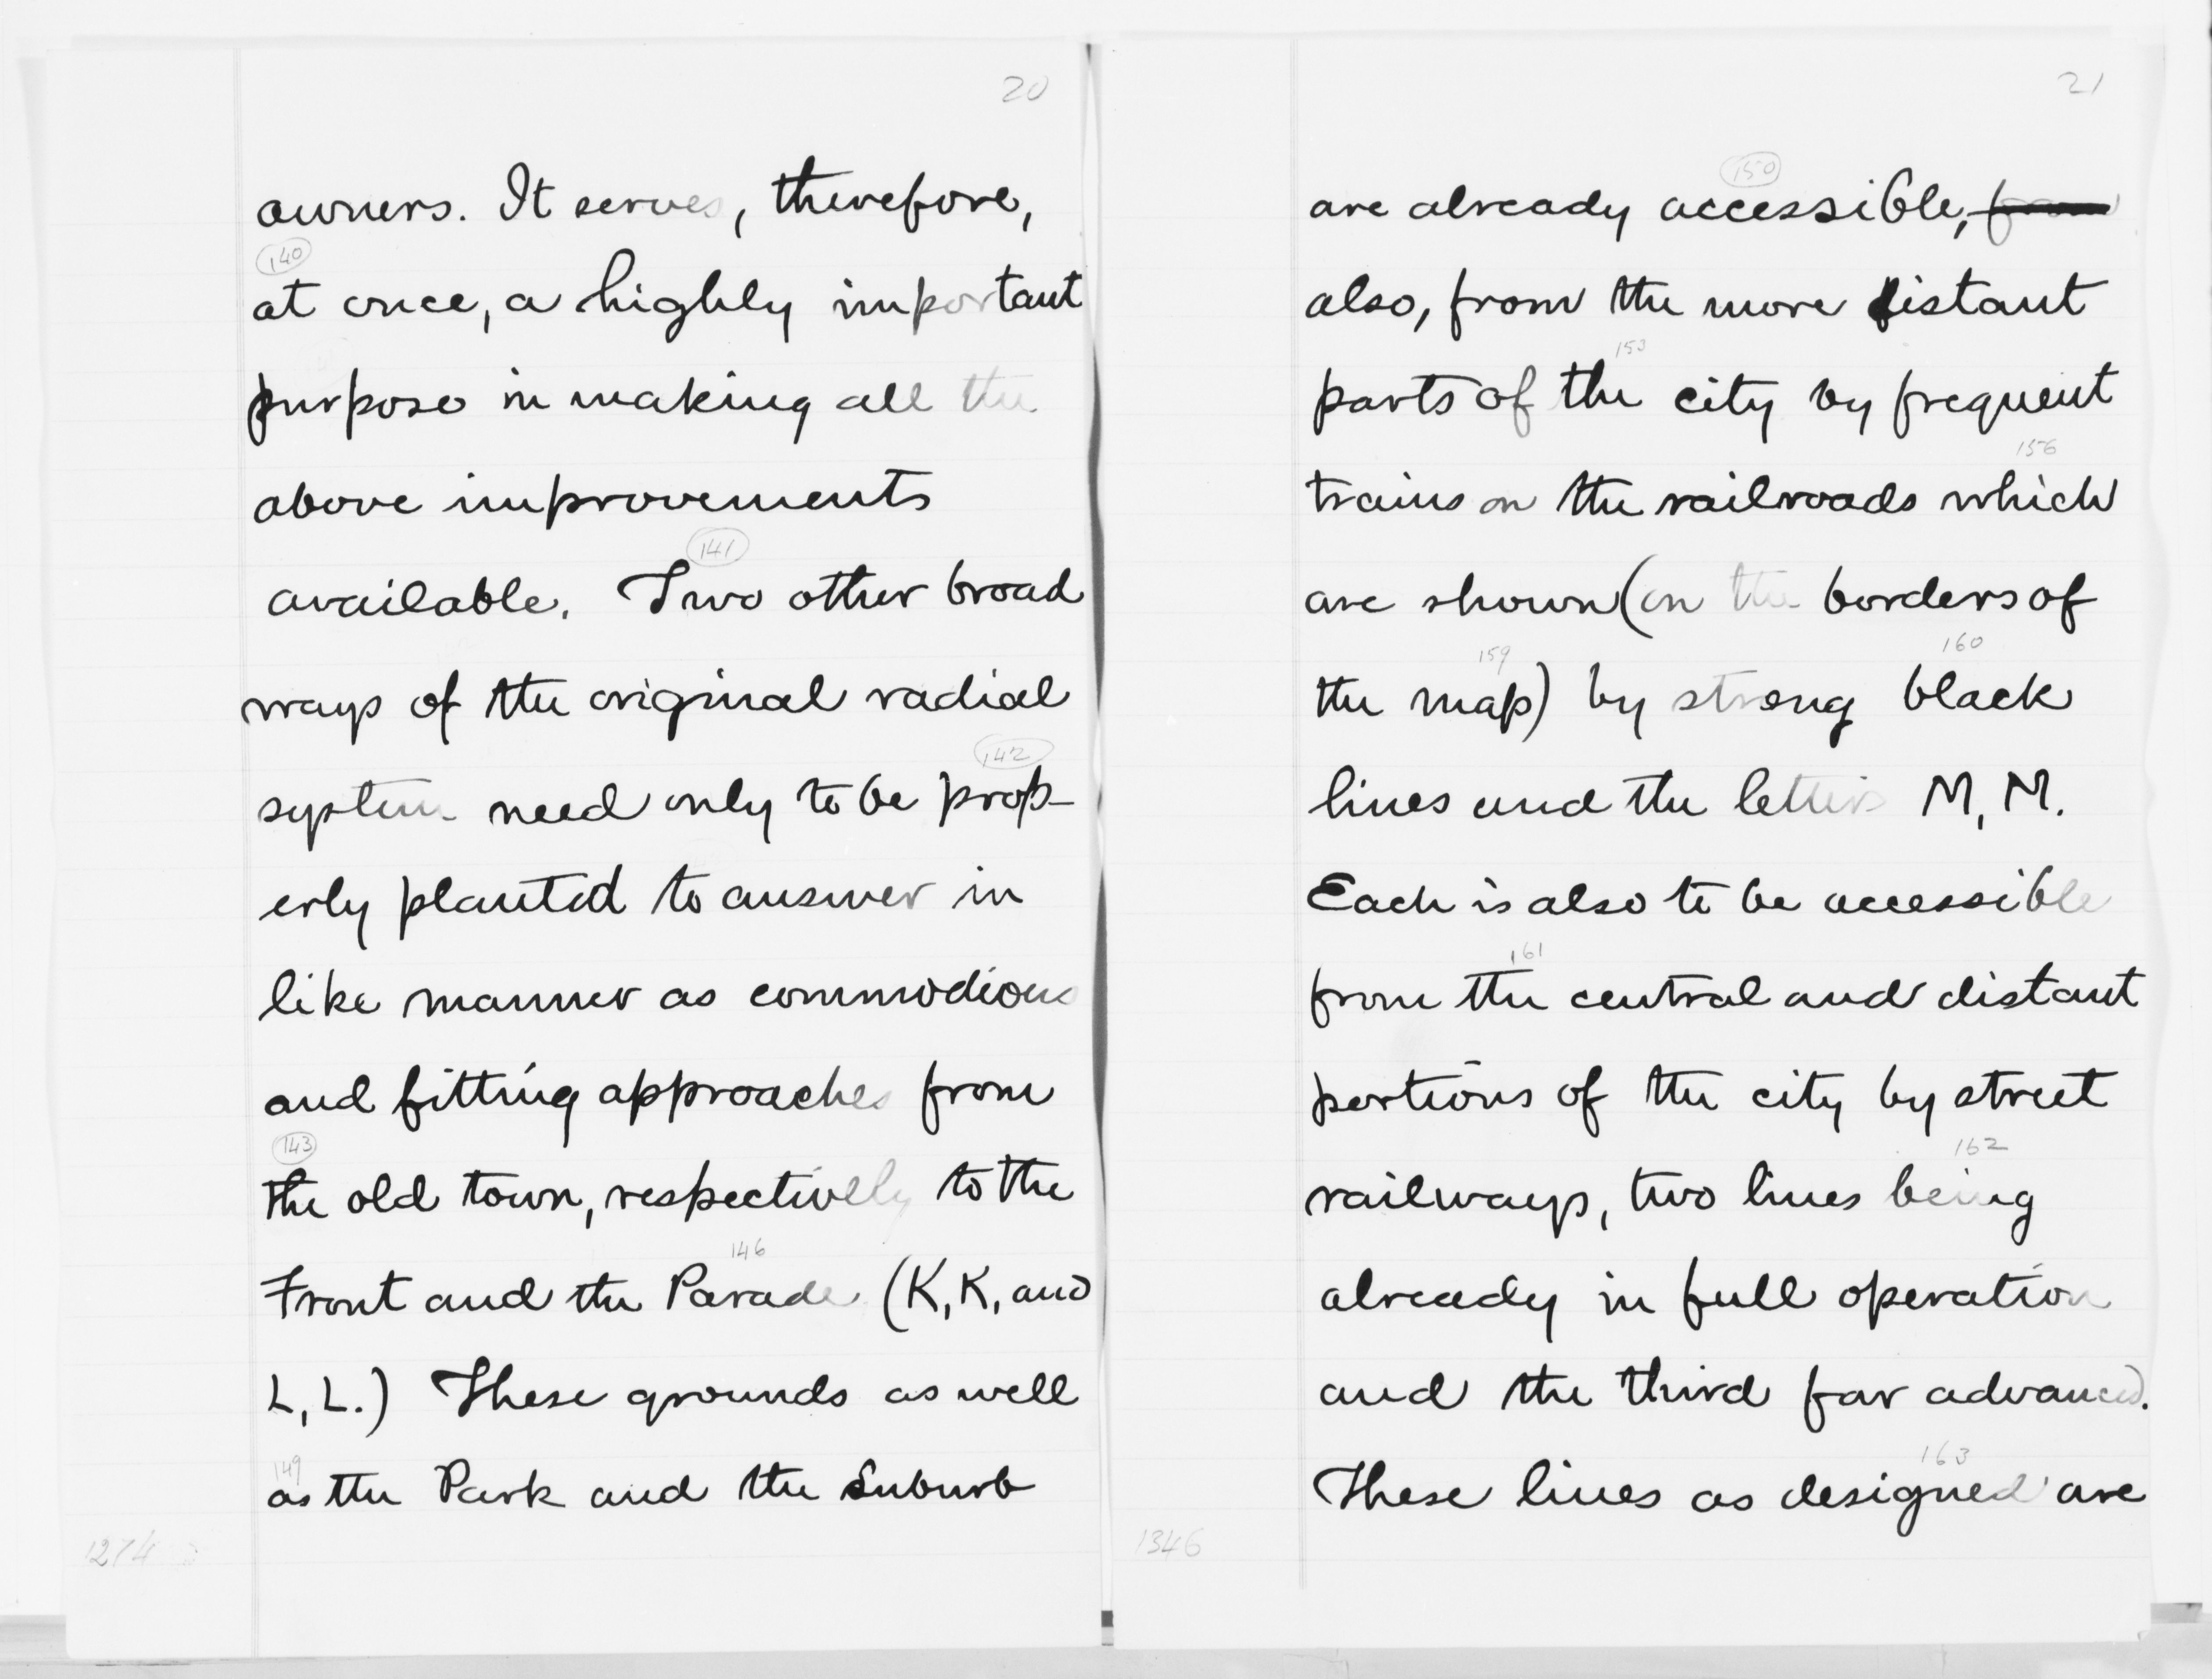 20
owners. It serves, therefore,
140
at once, a highly important
purpose in making all the
above improvements
141
available. Two other broad
ways of the original radial
142
system need only to be prop-
erly planted to answer in
like manner as commodious
and fitting approaches from
143
the old town, respectively to the
146
Front and the Parade (K, K, and
L, L.) These grounds as well
149
as the Park and the Suburb
1274
21
150
are already accessible, from
also, from the more distant
153
parts of the city by frequent
156
trains on the railroads which
are shown (on the borders of
159 160
the map) by strong black
lines and the letters M, M.
Each is also to be accessible
161
from the central and distant
portions of the city by street
162
railways, two lines being
already in full operation
and the third far advanced.
163
These lines as designed are
1346